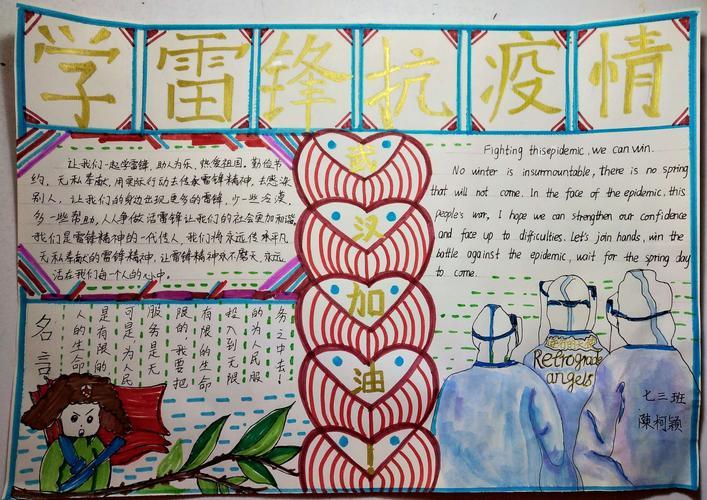 学雷锋抗疫情
让我们一起学雷锋，助人为乐，热爱祖国，勤俭节
约，无私奉献，用实际行动去传承雷锋精神，去感染
别人，让我们的身边出现更多的雷锋，少一些冷漠，
多一些帮助，人人争做活雷锋让我们的社会更加和谐
我们是雷锋精神的一代传人，我们将永远传承平凡
无私奉献的雷锋精神，让雷锋精神永不磨灭，永远
活在我们每一个人的心中。
武
汉
加
油
！
Fighting thisepidemic, we can win.
No winter is insurmountable, there is no spring
that will not come. In the face of the epidemic, this
people's war, I hope we can strengthen our confidence
and face up to difficulties. Let's join hands, win the
battle against the epidemic, wait for the spring day
to come.
名言
人的生命
是有限的
可是为人民
服务是无
限的我要把
有限的生命
投入到无限
的为人民服
务之中去！
Retrograde
angels
七三班
陳柯颖